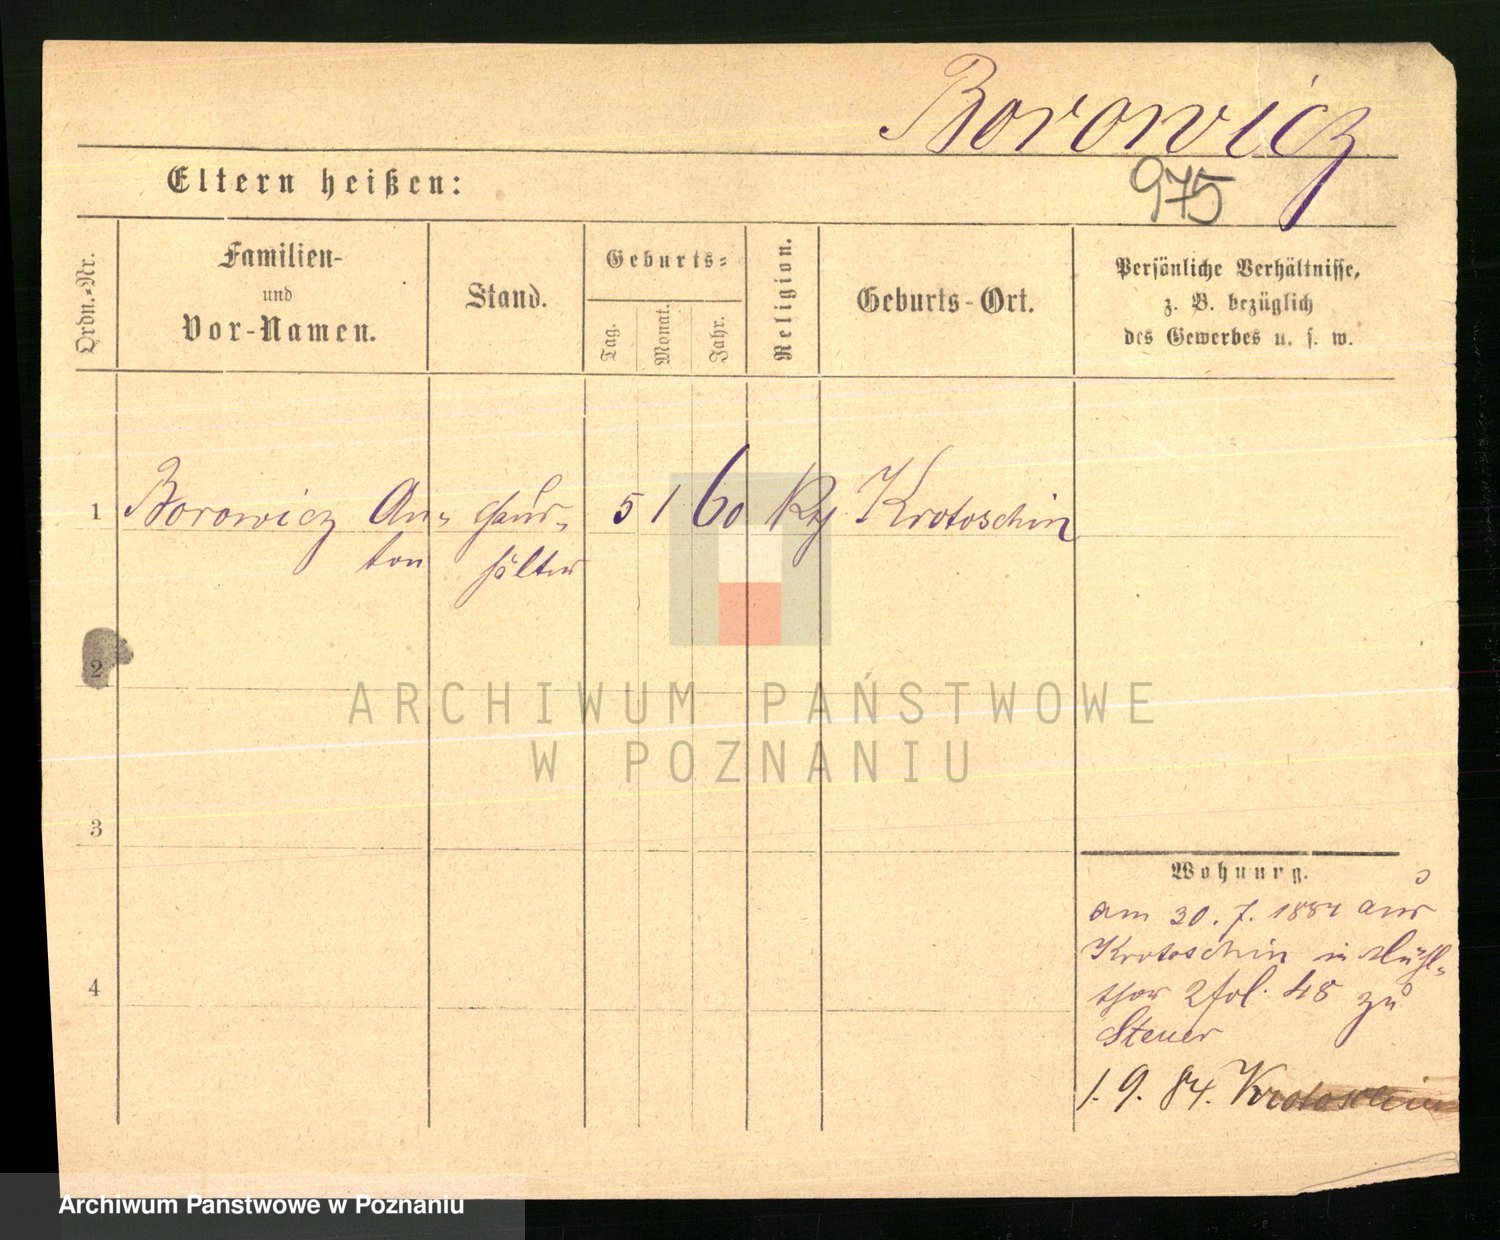 Borowicz
Eltern heißen:
975
Ordn.-Nr.
Familien-
und
Vor-Namen.
Stand.
Geburts-
Tag.
Monat.
Jahr.
Religion.
Geburts-Ort.
Persönliche Verhältnisse,
z. B. bezüglich
des Gewerbes u. s. w.
1 Borowicz An- Haus- 5 1 60 Krotoschin
ton hälter
2
ARCHIWUM PAŃSTWOWE
W POZNANIU
3
Wohnung.
am 30. 7. 1884 aus
Krotoschin in Mühl-
thor 2 fol. 48 zu
Steuer
4
1. 9. 84. Krotoschin
Archiwum Państwowe w Poznaniu